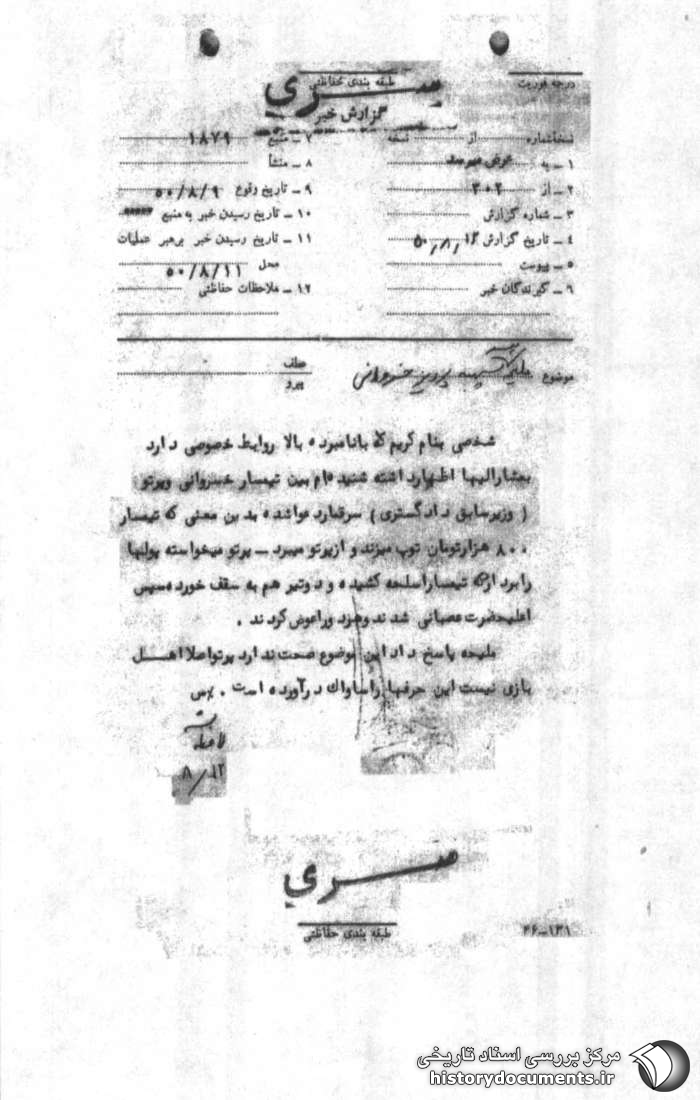 طبقه بندی حفاظتی
درجه فوریت
سری
گزارش خبر
نسخه‌شماره ... از ... نسخه
۱ ــ به عرض میرسد
۲ ــ از ۳۰۲
۳ ــ شماره گزارش
۴ ــ تاریخ گزارش ۵۰/۸/۱۲
۵ ــ پیوست
۶ ــ گیرندگان خبر
۷ ــ منبع ۱۸۷۹
۸ ــ منشأ
۹ ــ تاریخ وقوع ۵۰/۸/۹
۱۰ ــ تاریخ رسیدن خبر به منبع
۱۱ ــ تاریخ رسیدن خبر برهبر عملیات
محل ۵۰/۸/۱۱
۱۲ ــ ملاحظات حفاظتی
موضوع پرویز خسروانی
عطف
پیرو
شخصی بنام کریم که بانامبرده بالا روابط خصوصی دارد
بمشارالیها اظهارداشته شنیده‌ام بین تیمسار خسروانی وپرتو
( وزیرسابق دادگستری ) سرقمارد عواشده بدین معنی که تیمسار
۸۰۰ هزارتومان توپ میزند و ازپرتو میبرد ــ پرتو میخواسته پولها
را برد ارکه تیمساراسلحه کشیده و دوتیر هم به سقف خورده سپس
اعلیحضرت عصبانی شدند وهرد وراعوض کردند .
ملیحه پاسخ داد این موضوع صحت ندارد پرتواصلا اهــل
بازی نیست این حرفها راساواك درآورده است . س
۸/۱۲
سری
طبقه بندی حفاظتی
۲۶-۱۳۱
مرکز بررسی اسناد تاریخی
historydocuments.ir